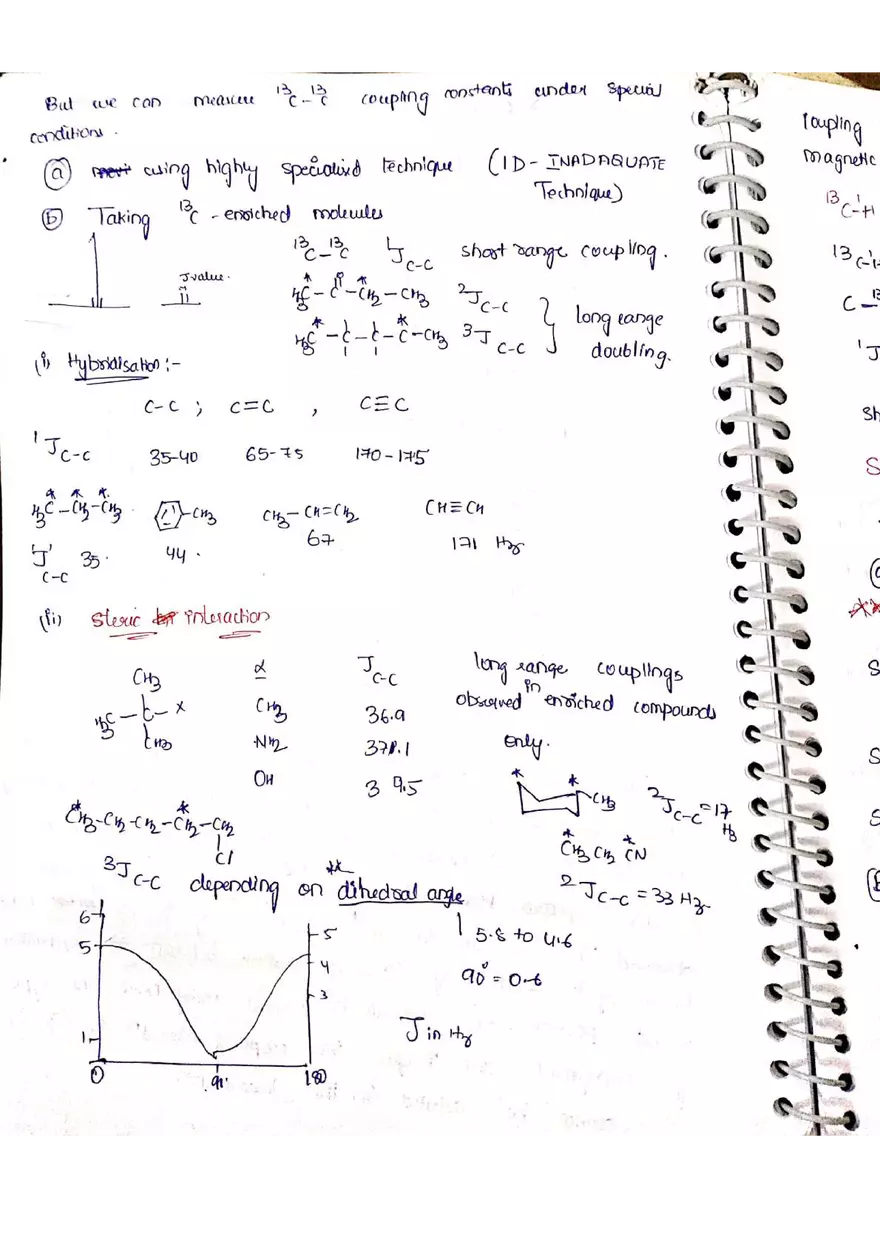 But we can measure ¹³C-¹³C coupling constants under special
conditions.
(a) using highly specialised technique (1D- INADAQUATE
Technique)
(b) Taking ¹³C - enriched molecules
¹³C-¹³C ¹J C-C short range coupling.
J value.
H₃C* - C - *CH₂ - CH₃ ²J C-C
H₃C* - C - C - C* - CH₃ ³J C-C
long range
doubling.
(i) Hybridisation :-
C-C ; C=C , C≡C
¹J C-C 35-40 65-75 170-175
H₃C* - *CH₂ - *CH₃ -CH₃ CH₃-CH=CH₂ CH≡CH
'J' C-C 35. 44. 67 171 Hz
(ii) Steric interaction
CH₃
H₃C - C - X
CH₃
J C-C
CH₃ 36.9
NH₂ 37.1
OH 39.5
long range couplings
observed in enriched compounds
only.
* * -CH₃ ²J C-C = 17 Hz
*CH₃ CH₂ *CN
²J C-C = 33 Hz
*CH₃-CH₂-CH₂-*CH₂-CH₂
Cl
³J C-C depending on ** dihedral angle
5.8 to 4.6
90° = 0.6
J in Hz
6
5
1
0 90° 180
5
4
3
Coupling
magnetic
¹³C-¹H
¹³C-¹H
C-¹³
¹J
Sh
S
**
S
S
S